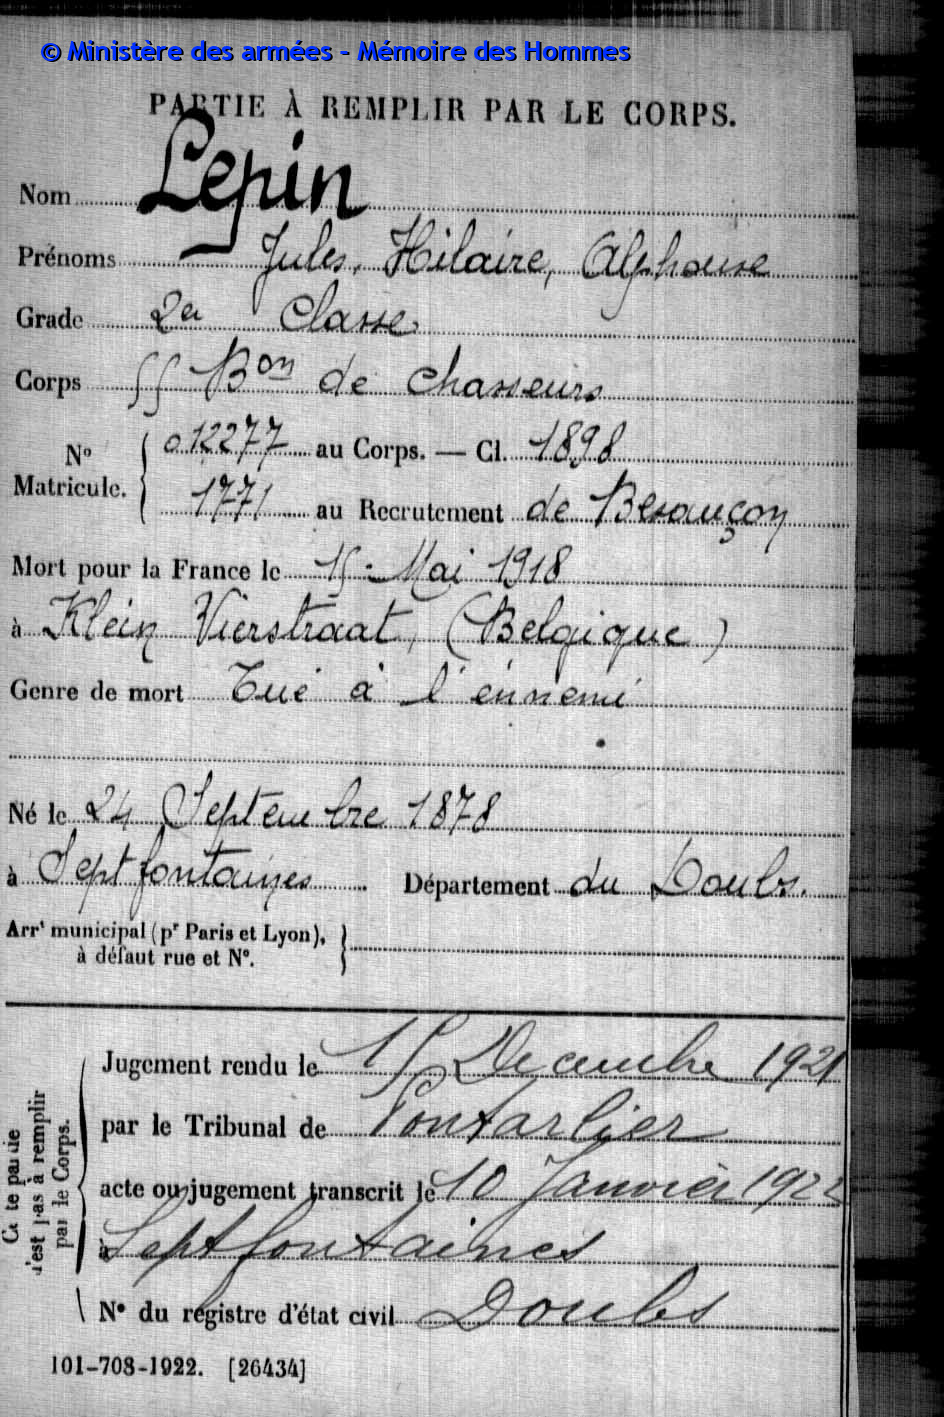 © Ministère des armées - Mémoire des Hommes
PARTIE À REMPLIR PAR LE CORPS.
Nom Lepin
Prénoms Jules, Hilaire, Alphonse
Grade 2e Classe
Corps 55 Bon de Chasseurs
No Matricule. { 012277 au Corps. — Cl. 1898
1771 au Recrutement de Besançon
Mort pour la France le 15 Mai 1918
à Klein Vierstraat, (Belgique)
Genre de mort Tué à l'ennemi
Né le 24 Septembre 1878
à Septfontaines Département du Doubs.
Arrt municipal (pr Paris et Lyon),
à défaut rue et N°.
Cette partie n'est pas à remplir par le Corps.
Jugement rendu le 15 Decembre 1921
par le Tribunal de Pontarlier
acte ou jugement transcrit le 10 Janvier 1922
à Septfontaines
N° du registre d'état civil Doubs
101-708-1922. [26434]